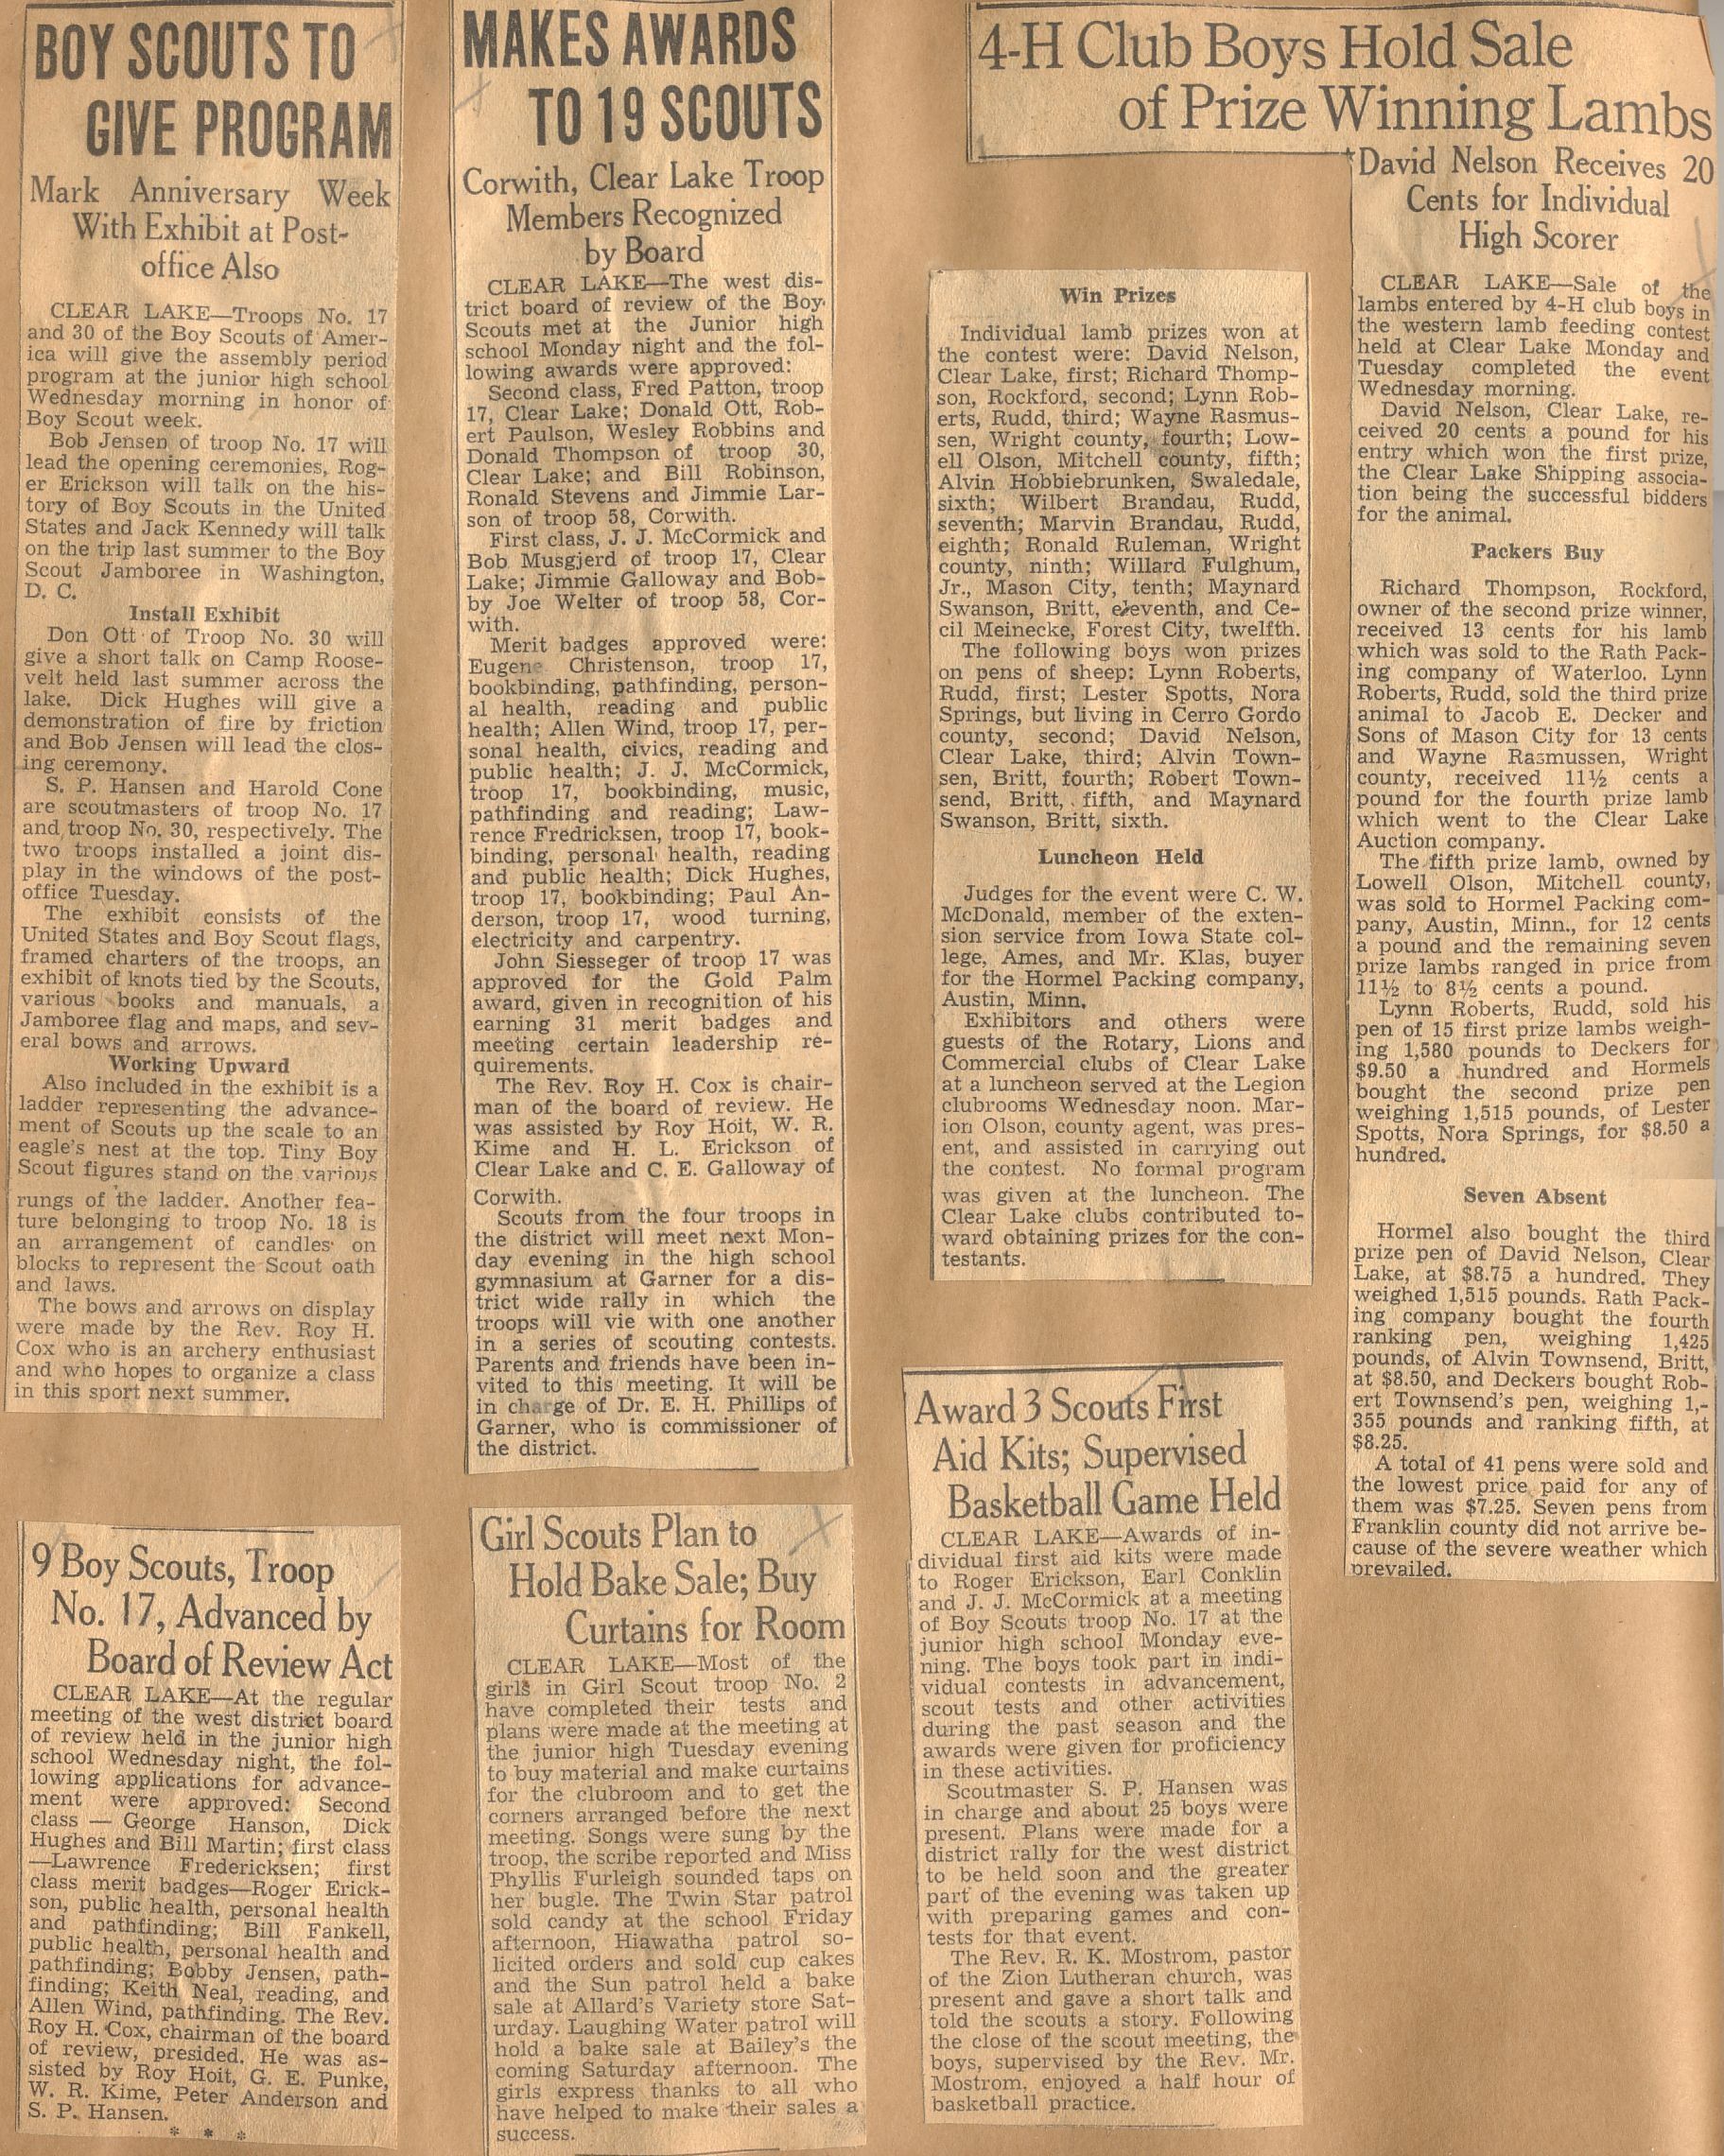 BOY SCOUTS TO
GIVE PROGRAM
Mark Anniversary Week
With Exhibit at Post-
office Also
CLEAR LAKE—Troops No. 17
and 30 of the Boy Scouts of Amer-
ica will give the assembly period
program at the junior high school
Wednesday morning in honor of
Boy Scout week.
Bob Jensen of troop No. 17 will
lead the opening ceremonies, Rog-
er Erickson will talk on the his-
tory of Boy Scouts in the United
States and Jack Kennedy will talk
on the trip last summer to the Boy
Scout Jamboree in Washington,
D. C.
Install Exhibit
Don Ott of Troop No. 30 will
give a short talk on Camp Roose-
velt held last summer across the
lake. Dick Hughes will give a
demonstration of fire by friction
and Bob Jensen will lead the clos-
ing ceremony.
S. P. Hansen and Harold Cone
are scoutmasters of troop No. 17
and troop No. 30, respectively. The
two troops installed a joint dis-
play in the windows of the post-
office Tuesday.
The exhibit consists of the
United States and Boy Scout flags,
framed charters of the troops, an
exhibit of knots tied by the Scouts,
various books and manuals, a
Jamboree flag and maps, and sev-
eral bows and arrows.
Working Upward
Also included in the exhibit is a
ladder representing the advance-
ment of Scouts up the scale to an
eagle's nest at the top. Tiny Boy
Scout figures stand on the various
rungs of the ladder. Another fea-
ture belonging to troop No. 18 is
an arrangement of candles on
blocks to represent the Scout oath
and laws.
The bows and arrows on display
were made by the Rev. Roy H.
Cox who is an archery enthusiast
and who hopes to organize a class
in this sport next summer.
9 Boy Scouts, Troop
No. 17, Advanced by
Board of Review Act
CLEAR LAKE—At the regular
meeting of the west district board
of review held in the junior high
school Wednesday night, the fol-
lowing applications for advance-
ment were approved: Second
class — George Hanson, Dick
Hughes and Bill Martin; first class
—Lawrence Fredericksen; first
class merit badges—Roger Erick-
son, public health, personal health
and pathfinding; Bill Fankell,
public health, personal health and
pathfinding; Bobby Jensen, path-
finding; Keith Neal, reading, and
Allen Wind, pathfinding. The Rev.
Roy H. Cox, chairman of the board
of review, presided. He was as-
sisted by Roy Hoit, G. E. Punke,
W. R. Kime, Peter Anderson and
S. P. Hansen.
* * *
MAKES AWARDS
TO 19 SCOUTS
Corwith, Clear Lake Troop
Members Recognized
by Board
CLEAR LAKE—The west dis-
trict board of review of the Boy
Scouts met at the Junior high
school Monday night and the fol-
lowing awards were approved:
Second class, Fred Patton, troop
17, Clear Lake; Donald Ott, Rob-
ert Paulson, Wesley Robbins and
Donald Thompson of troop 30,
Clear Lake; and Bill Robinson,
Ronald Stevens and Jimmie Lar-
son of troop 58, Corwith.
First class, J. J. McCormick and
Bob Musgjerd of troop 17, Clear
Lake; Jimmie Galloway and Bob-
by Joe Welter of troop 58, Cor-
with.
Merit badges approved were:
Eugene Christenson, troop 17,
bookbinding, pathfinding, person-
al health, reading and public
health; Allen Wind, troop 17, per-
sonal health, civics, reading and
public health; J. J. McCormick,
troop 17, bookbinding, music,
pathfinding and reading; Law-
rence Fredricksen, troop 17, book-
binding, personal health, reading
and public health; Dick Hughes,
troop 17, bookbinding; Paul An-
derson, troop 17, wood turning,
electricity and carpentry.
John Siesseger of troop 17 was
approved for the Gold Palm
award, given in recognition of his
earning 31 merit badges and
meeting certain leadership re-
quirements.
The Rev. Roy H. Cox is chair-
man of the board of review. He
was assisted by Roy Hoit, W. R.
Kime and H. L. Erickson of
Clear Lake and C. E. Galloway of
Corwith.
Scouts from the four troops in
the district will meet next Mon-
day evening in the high school
gymnasium at Garner for a dis-
trict wide rally in which the
troops will vie with one another
in a series of scouting contests.
Parents and friends have been in-
vited to this meeting. It will be
in charge of Dr. E. H. Phillips of
Garner, who is commissioner of
the district.
Girl Scouts Plan to
Hold Bake Sale; Buy
Curtains for Room
CLEAR LAKE—Most of the
girls in Girl Scout troop No. 2
have completed their tests and
plans were made at the meeting at
the junior high Tuesday evening
to buy material and make curtains
for the clubroom and to get the
corners arranged before the next
meeting. Songs were sung by the
troop, the scribe reported and Miss
Phyllis Furleigh sounded taps on
her bugle. The Twin Star patrol
sold candy at the school Friday
afternoon, Hiawatha patrol so-
licited orders and sold cup cakes
and the Sun patrol held a bake
sale at Allard's Variety store Sat-
urday. Laughing Water patrol will
hold a bake sale at Bailey's the
coming Saturday afternoon. The
girls express thanks to all who
have helped to make their sales a
success.
4-H Club Boys Hold Sale
of Prize Winning Lambs
David Nelson Receives 20
Cents for Individual
High Scorer
CLEAR LAKE—Sale of the
lambs entered by 4-H club boys in
the western lamb feeding contest
held at Clear Lake Monday and
Tuesday completed the event
Wednesday morning.
David Nelson, Clear Lake, re-
ceived 20 cents a pound for his
entry which won the first prize,
the Clear Lake Shipping associa-
tion being the successful bidders
for the animal.
Packers Buy
Richard Thompson, Rockford,
owner of the second prize winner,
received 13 cents for his lamb
which was sold to the Rath Pack-
ing company of Waterloo. Lynn
Roberts, Rudd, sold the third prize
animal to Jacob E. Decker and
Sons of Mason City for 13 cents
and Wayne Rasmussen, Wright
county, received 11½ cents a
pound for the fourth prize lamb
which went to the Clear Lake
Auction company.
The fifth prize lamb, owned by
Lowell Olson, Mitchell county,
was sold to Hormel Packing com-
pany, Austin, Minn., for 12 cents
a pound and the remaining seven
prize lambs ranged in price from
11½ to 8½ cents a pound.
Lynn Roberts, Rudd, sold his
pen of 15 first prize lambs weigh-
ing 1,580 pounds to Deckers for
$9.50 a hundred and Hormels
bought the second prize pen
weighing 1,515 pounds, of Lester
Spotts, Nora Springs, for $8.50 a
hundred.
Seven Absent
Hormel also bought the third
prize pen of David Nelson, Clear
Lake, at $8.75 a hundred. They
weighed 1,515 pounds. Rath Pack-
ing company bought the fourth
ranking pen, weighing 1,425
pounds, of Alvin Townsend, Britt,
at $8.50, and Deckers bought Rob-
ert Townsend's pen, weighing 1,-
355 pounds and ranking fifth, at
$8.25.
A total of 41 pens were sold and
the lowest price paid for any of
them was $7.25. Seven pens from
Franklin county did not arrive be-
cause of the severe weather which
prevailed.
Win Prizes
Individual lamb prizes won at
the contest were: David Nelson,
Clear Lake, first; Richard Thomp-
son, Rockford, second; Lynn Rob-
erts, Rudd, third; Wayne Rasmus-
sen, Wright county, fourth; Low-
ell Olson, Mitchell county, fifth;
Alvin Hobbiebrunken, Swaledale,
sixth; Wilbert Brandau, Rudd,
seventh; Marvin Brandau, Rudd,
eighth; Ronald Ruleman, Wright
county, ninth; Willard Fulghum,
Jr., Mason City, tenth; Maynard
Swanson, Britt, eleventh, and Ce-
cil Meinecke, Forest City, twelfth.
The following boys won prizes
on pens of sheep: Lynn Roberts,
Rudd, first; Lester Spotts, Nora
Springs, but living in Cerro Gordo
county, second; David Nelson,
Clear Lake, third; Alvin Town-
sen, Britt, fourth; Robert Town-
send, Britt, fifth, and Maynard
Swanson, Britt, sixth.
Luncheon Held
Judges for the event were C. W.
McDonald, member of the exten-
sion service from Iowa State col-
lege, Ames, and Mr. Klas, buyer
for the Hormel Packing company,
Austin, Minn.
Exhibitors and others were
guests of the Rotary, Lions and
Commercial clubs of Clear Lake
at a luncheon served at the Legion
clubrooms Wednesday noon. Mar-
ion Olson, county agent, was pres-
ent, and assisted in carrying out
the contest. No formal program
was given at the luncheon. The
Clear Lake clubs contributed to-
ward obtaining prizes for the con-
testants.
Award 3 Scouts First
Aid Kits; Supervised
Basketball Game Held
CLEAR LAKE—Awards of in-
dividual first aid kits were made
to Roger Erickson, Earl Conklin
and J. J. McCormick at a meeting
of Boy Scouts troop No. 17 at the
junior high school Monday eve-
ning. The boys took part in indi-
vidual contests in advancement,
scout tests and other activities
during the past season and the
awards were given for proficiency
in these activities.
Scoutmaster S. P. Hansen was
in charge and about 25 boys were
present. Plans were made for a
district rally for the west district
to be held soon and the greater
part of the evening was taken up
with preparing games and con-
tests for that event.
The Rev. R. K. Mostrom, pastor
of the Zion Lutheran church, was
present and gave a short talk and
told the scouts a story. Following
the close of the scout meeting, the
boys, supervised by the Rev. Mr.
Mostrom, enjoyed a half hour of
basketball practice.